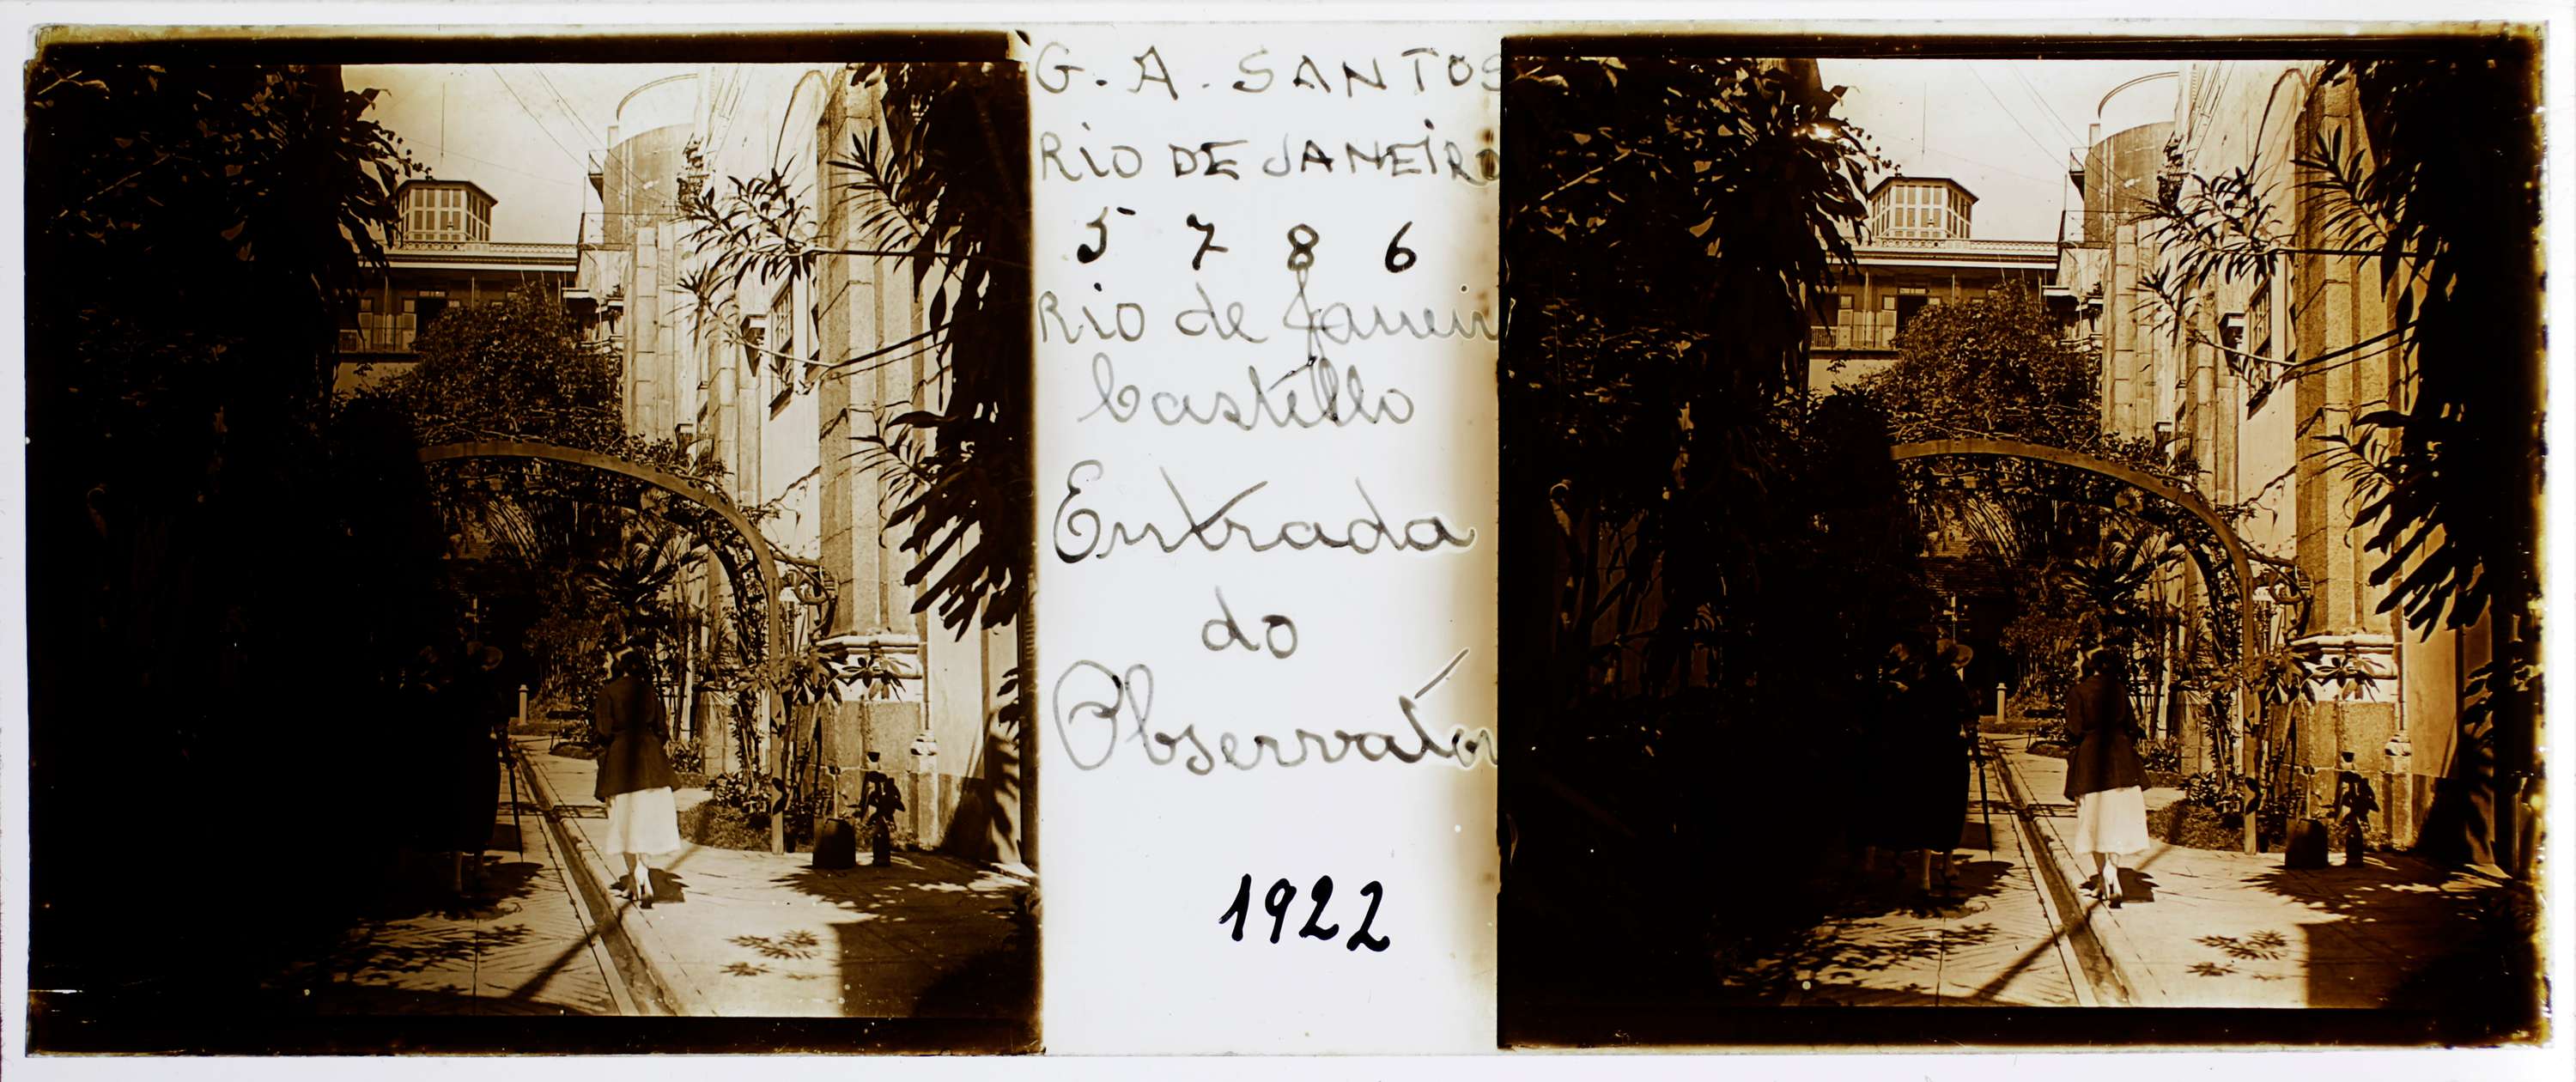 G. A. SANTOS
RIO DE JANEIRO
5 7 8 6
Rio de Janeir
Castello
Entrada
do
Observatór
1922